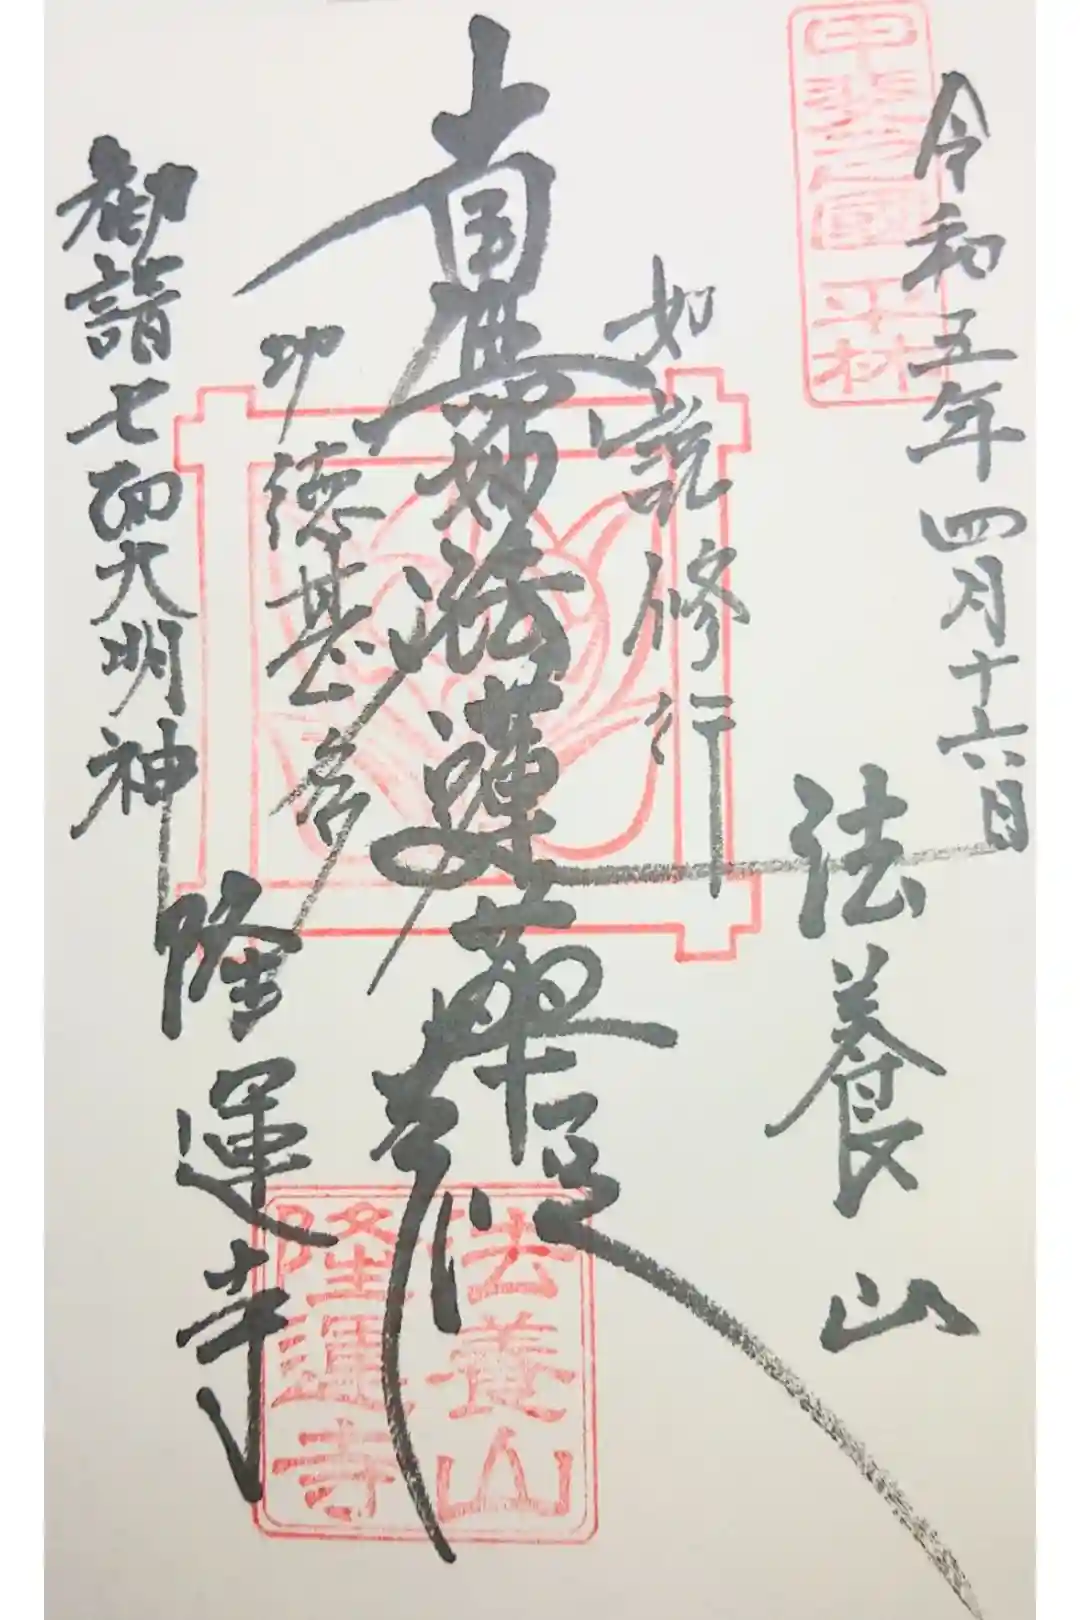 甲斐之國 平林
令和五年四月十六日
法養山
如説修行
南無妙法蓮華経
功徳甚多
勧請七面大明神
隆運寺
法養山
隆運寺